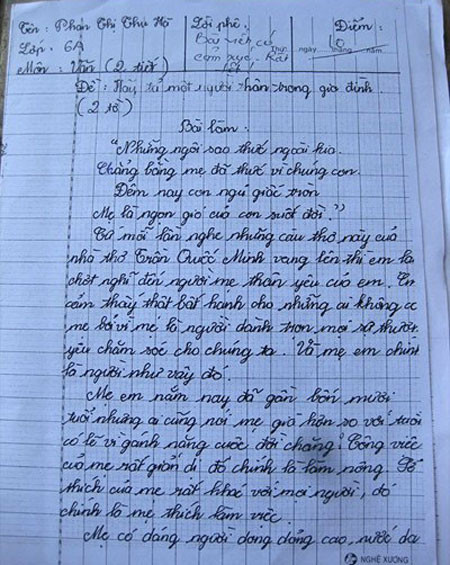 Tên: Phan Thị Thu Hà   Lời phê:   Điểm:
Lớp: 6A   Bài viết có   Thứ   ngày   tháng   năm   10
Môn: Văn (2 tiết)   cảm xúc. Rất tốt!
Đề: Hãy tả một người thân trong gia đình.
(2 tờ)
Bài làm:
"Những ngôi sao thức ngoài kia
Chẳng bằng mẹ đã thức vì chúng con.
Đêm nay con ngủ giấc tròn
Mẹ là ngọn gió của con suốt đời."
Cứ mỗi lần nghe những câu thơ này của
nhà thơ Trần Quốc Minh vang lên thì em lại
chợt nghĩ đến người mẹ thân yêu của em. Em
cảm thấy thật bất hạnh cho những ai không có
mẹ bởi vì mẹ là người dành trọn mọi sự thương
yêu chăm sóc cho chúng ta. Và mẹ em chính
là người như vậy đó.
Mẹ em năm nay đã gần bốn mươi
tuổi nhưng ai cũng nói mẹ già hơn so với tuổi
có lẽ vì gánh nặng cuộc đời chăng? Công việc
của mẹ rất giản dị đó chính là làm nông. Sở
thích của mẹ rất khác với mọi người, đó
chính là mẹ thích làm việc.
Mẹ có dáng người dong dỏng cao, nước da
NGHỆ XƯƠNG